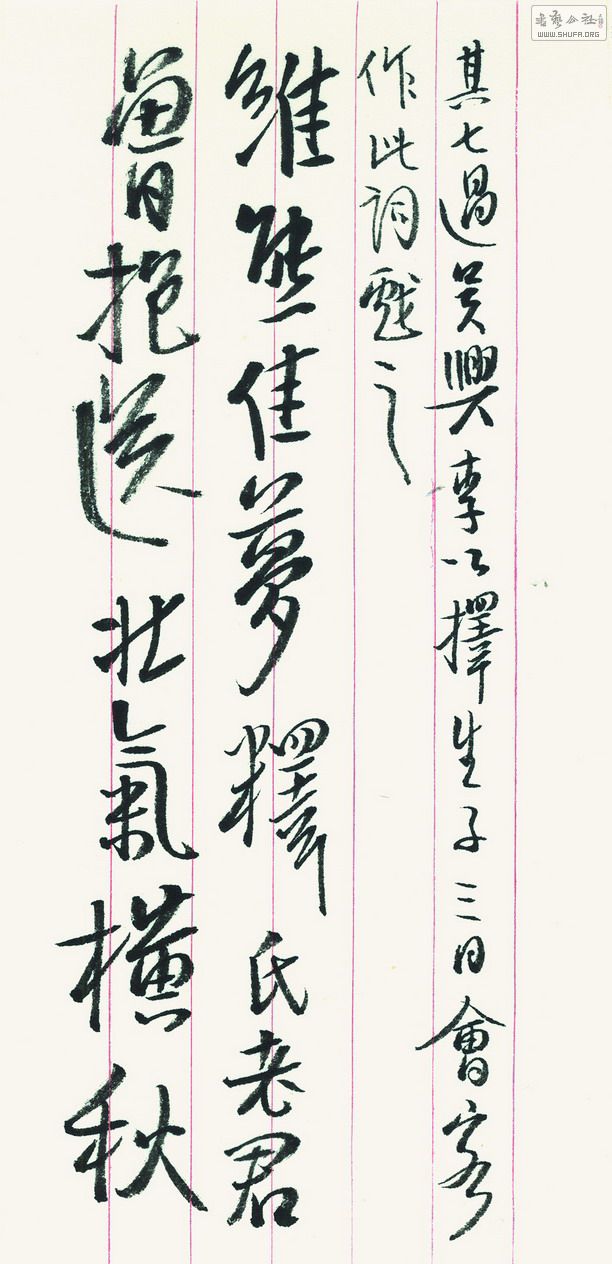 其七過吳興李公擇生子三日會客
作此詞戲之
維熊佳夢釋氏老君
曾抱送壯氣橫秋
書藝公社
WWW.SHUFA.ORG